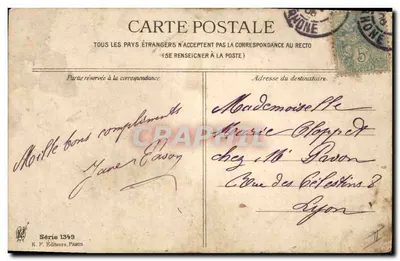 CARTE POSTALE
TOUS LES PAYS ÉTRANGERS N'ACCEPTENT PAS LA CORRESPONDANCE AU RECTO
(SE RENSEIGNER À LA POSTE)
RHONE
RHONE
5
Partie réservée à la correspondance
Adresse du destinataire
Mille bons compliments
Jane
Mademoiselle
Marie
chez Mr
Rue des Célestins 8
Lyon
CPAPHIL
Série 1349
K. F. Éditeurs, PARIS